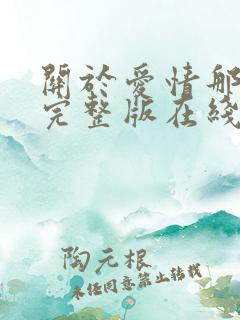 關於愛情那
完整版在綫
陶元根
未經同意禁止轉載